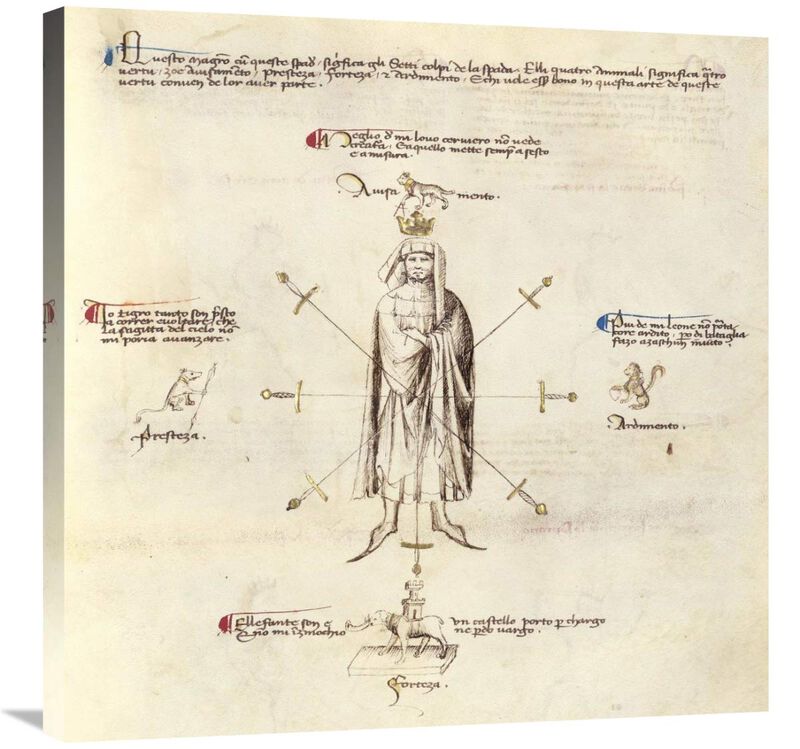 Questo magro cũ queste spad, significa gli Setti colpi de la spada. Elli quatro animali significa qtro
vertu, zoe avisamẽto, Presteza, Forteza, & Ardimento. E chi vole ess bono in questa arte de queste
vertu conven de lor aver parte.
Meglio d mi lovo cerviero nõ vede
creatura. E aquello mette semp a sesto
e a misura.
Avisa mento.
Io tigro tanto son psto
a correr e voltare, che
la sagitta del cielo nõ
mi poria avanzare.
Presteza.
Piu de mi leone nõ pta
core ardito, po di bataglia
fazo a zaschun invito.
Ardimento.
Ellefante son e un castello porto p chargo
e nõ mi inzinochio ne pdo vargo.
Forteza.